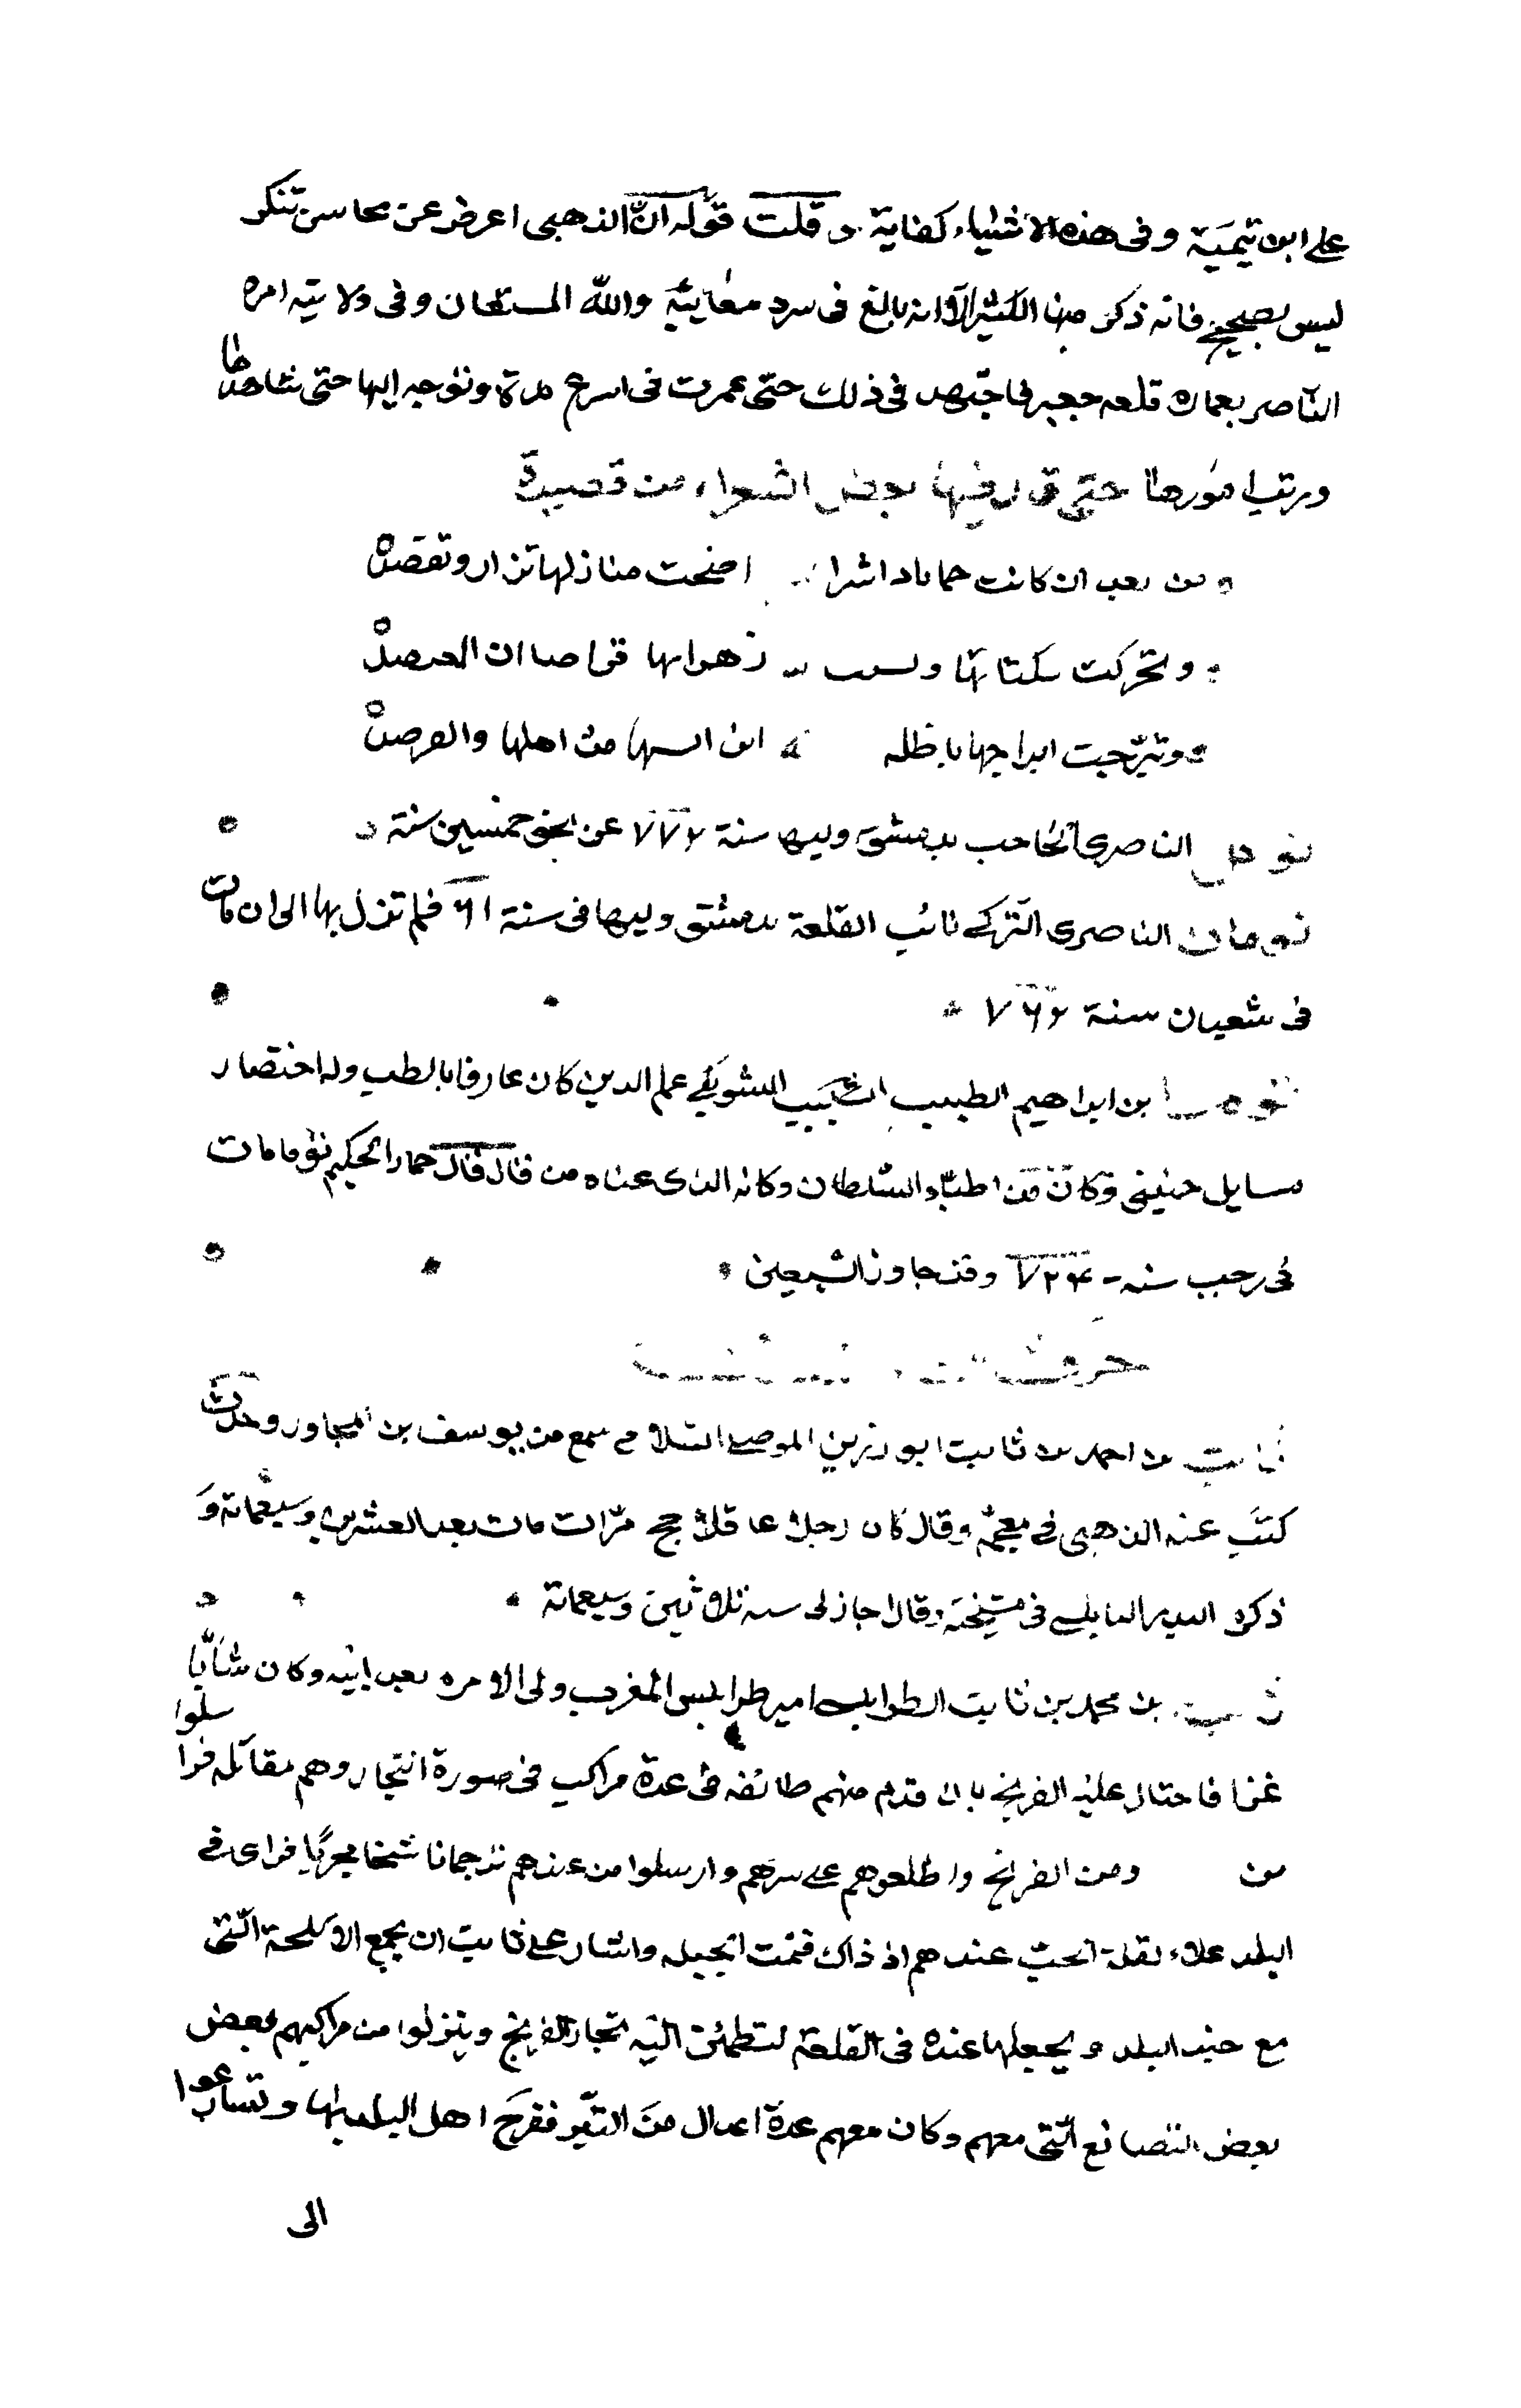 على ابن تيمية وفى هذه الاشياء كفاية قلت قوله ان الذهبى اعرض عن محاسن تنكز
ليس بصحيح فانه ذكر منها الكثير الا انه بالغ فى سرد معايبه والله المستعان وفى ولايته امره
الناصر بعمارة قلعه جعبر فاجتهد فى ذلك حتى عمرت فى اسرع مدة وتوجه اليها حتى شاهدها
ورتب امورها حتى قال فيها بعض الشعراء من قصيدة
من بعد ان كانت اضحت منازلها تزار وتقصد
وتحركت سكناتها
وتبرجت ابراجها اهلها والفرصد
الناصرى الحاجب بدمشق وليها سنة ٧٧٢ عن نحو خمسين سنة
الناصرى التركى نائب القلعة بدمشق وليها فى سنة ٦١ فلم تزل بها الى ان مات
فى شعبان سنة ٧٦٢
توما بن ابراهيم الطبيب الشوبكى علم الدين كان عارفا بالطب وله اختصار
مسايل حنين وكان من اطباء السلطان وكانه الذى عناه من قال قال حمار الحكيم توما مات
فى رجب سنه ٧٢٤ وقد جاوز السبعين
حرف الثاء المثلثة
ثابت بن احمد بن ثابت ابو رزين الموصلى السلامى سمع من يوسف بن المجاور وحدث
كتب عنه الذهبى فى معجمه وقال كان رجلا عاقلا حج مرات مات بعد العشرين وسبعمائة و
ذكره البدر النابلسى فى مشيخته وقال اجاز لى سنه ثلاثين وسبعمائة
ثابت بن محمد بن ثابت الطرابلسى امير طرابلس المغرب ولى الامره بعد ابيه وكان شابا
غرا فاحتال عليه الفرنج بان قدم منهم طائفه فى عدة مراكب فى صورة التجار وهم مقاتله فراسلوا
من ومن الفرنج واطلعوهم على سرهم وارسلوا من عندهم ترجمانا شيخا مجربا فراى فى
البلد غلاء لقلة الحب عندهم اذ ذاك فتمت الحيله واشار على ثابت ان يجمع الاسلحة التى
مع جند البلد ويجعلها عنده فى القلعة لتطمئن اليه تجار الفرنج وينزلوا من مراكبهم بعض
بعض البضائع التى معهم وكان معهم عدة اعدال من ففرح اهل البلد بها وتسارعوا
الى